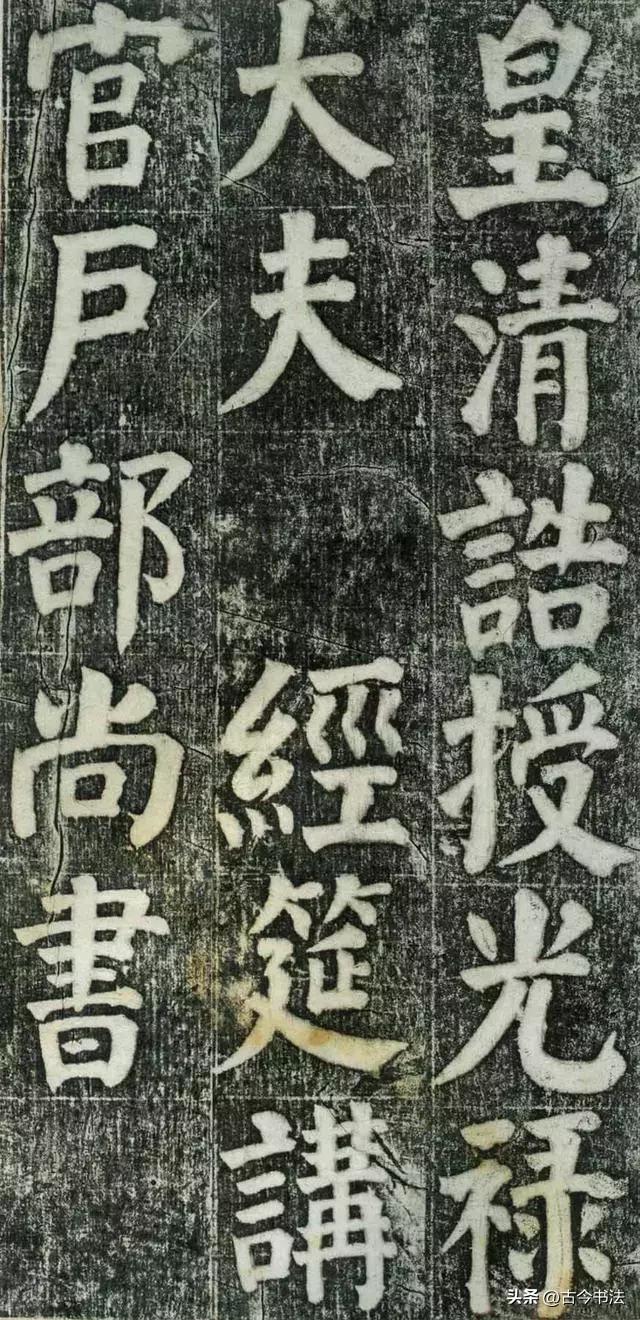 皇清誥授光禄
大夫 經筵講
官戶部尚書
头条 @古今书法